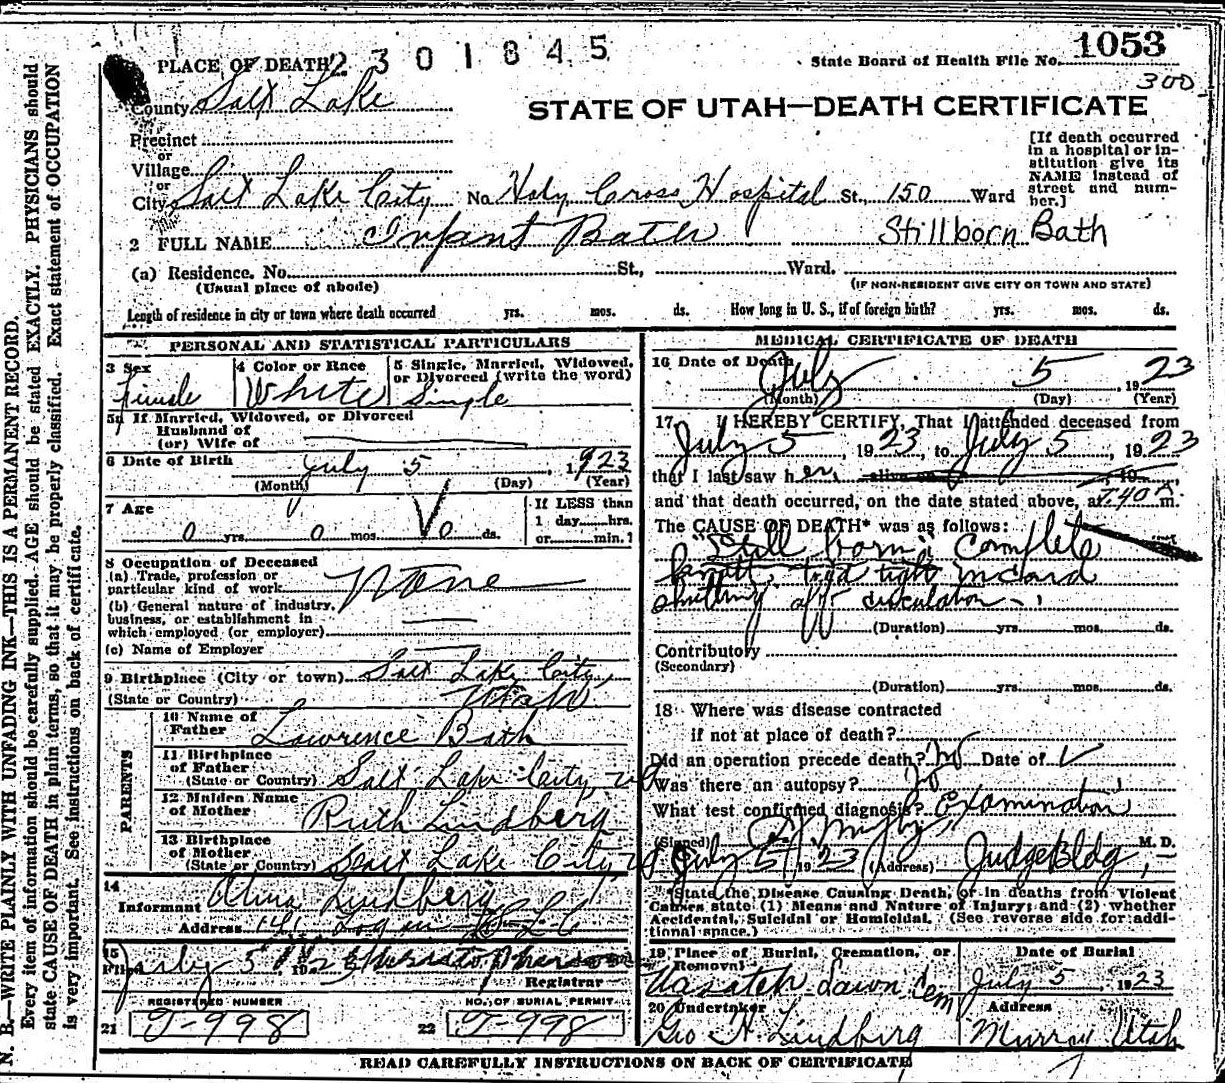 2301845
State Board of Health File No. 1053
300
PLACE OF DEATH
County Salt Lake
STATE OF UTAH—DEATH CERTIFICATE
Precinct
or
Village
or
City Salt Lake City No. Holy Cross Hospital St., 150 Ward
[If death occurred in a hospital or institution give its NAME instead of street and number.]
2 FULL NAME Infant Bath Stillborn Bath
(a) Residence. No. St., Ward.
(Usual place of abode) (IF NON-RESIDENT GIVE CITY OR TOWN AND STATE)
Length of residence in city or town where death occurred yrs. mos. ds. How long in U. S., if of foreign birth? yrs. mos. ds.
PERSONAL AND STATISTICAL PARTICULARS
3 Sex 4 Color or Race 5 Single, Married, Widowed,
or Divorced (write the word)
Female White Single
5a If Married, Widowed, or Divorced
Husband of
(or) Wife of
6 Date of Birth July 5, 1923
(Month) (Day) (Year)
7 Age If LESS than
1 day hrs.
0 yrs. 0 mos. 0 ds. or min.?
8 Occupation of Deceased
(a) Trade, profession or
particular kind of work None
(b) General nature of industry,
business, or establishment in
which employed (or employer)
(c) Name of Employer
9 Birthplace (City or town) Salt Lake City,
(State or Country) Utah
PARENTS
10 Name of
Father Lawrence Bath
11 Birthplace
of Father
(State or Country) Salt Lake City,
12 Maiden Name
of Mother Ruth Lindberg
13 Birthplace
of Mother
(State or Country) Salt Lake City
14
Informant Alma Lindberg
Address Logan S L C
15
Filed July 5 192
Registrar
REGISTERED NUMBER NO. OF BURIAL PERMIT
21 J-998 22 J-998
MEDICAL CERTIFICATE OF DEATH
16 Date of Death July 5, 1923
(Month) (Day) (Year)
17 I HEREBY CERTIFY, That I attended deceased from
July 5, 1923, to July 5, 1923
that I last saw her alive on 19
and that death occurred, on the date stated above, at 7.40 A m.
The CAUSE OF DEATH* was as follows:
"Still born" Complete
knott, tied tight in cord
shutting off circulation
(Duration) yrs. mos. ds.
Contributory
(Secondary)
(Duration) yrs. mos. ds.
18 Where was disease contracted
if not at place of death?
Did an operation precede death? No Date of
Was there an autopsy? No
What test confirmed diagnosis? Examination
(Signed) M. D.
July 5, 1923 (Address) Judge Bldg
*State the Disease Causing Death, or in deaths from Violent
Causes state (1) Means and Nature of Injury; and (2) whether
Accidental, Suicidal or Homicidal. (See reverse side for addi-
tional space.)
19 Place of Burial, Cremation, or Date of Burial
Removal
Wasatch Lawn Cem July 5, 1923
20 Undertaker Address
Geo H. Lindberg Murray Utah
READ CAREFULLY INSTRUCTIONS ON BACK OF CERTIFICATE
N. B.—WRITE PLAINLY WITH UNFADING INK—THIS IS A PERMANENT RECORD.
Every item of information should be carefully supplied. AGE should be stated EXACTLY. PHYSICIANS should
state CAUSE OF DEATH in plain terms, so that it may be properly classified. Exact statement of OCCUPATION
is very important. See instructions on back of certificate.